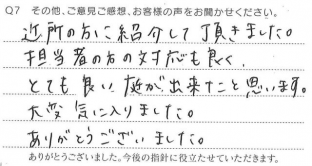 Q7 その他、ご意見ご感想、お客様の声をお聞かせください。
近所の方に紹介して頂きました。
担当者の方の対応も良く、
とても良い庭が出来たこと思います。
大変気に入りました。
ありがとうございました。
ありがとうございました。今後の指針に役立たせていただきます。